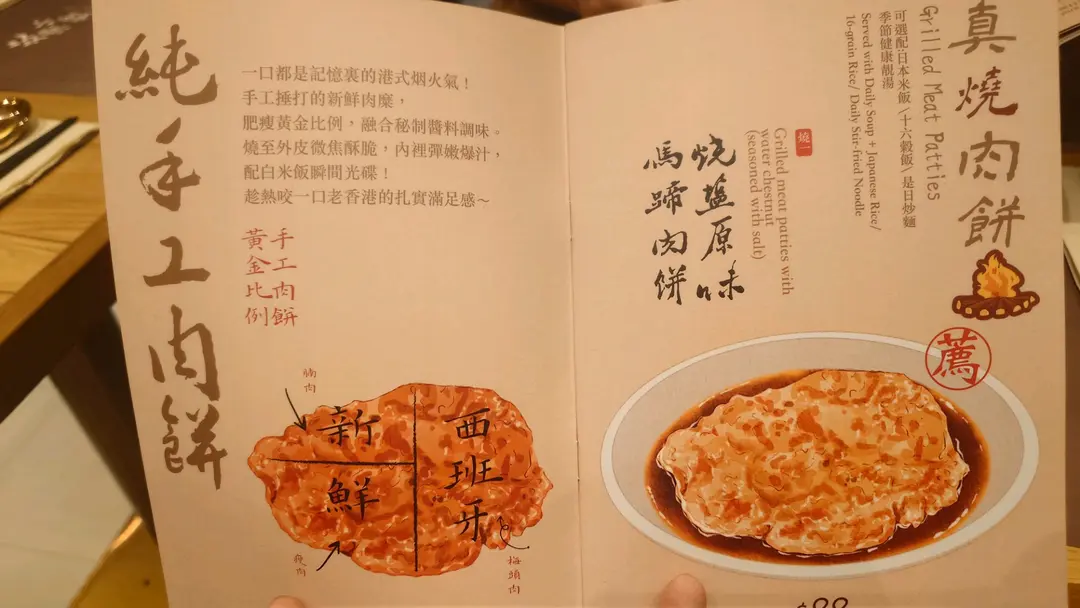 純手工肉餅
一口都是記憶裏的港式烟火氣！
手工捶打的新鮮肉糜，
肥瘦黃金比例，融合秘制醬料調味。
燒至外皮微焦酥脆，內裡彈嫩爆汁，
配白米飯瞬間光碟！
趁熱咬一口老香港的扎實滿足感～
手工肉餅
黃金比例
腩肉
新
鮮
瘦肉
西班牙
梅頭肉
真燒肉餅
Grilled Meat Patties
可選配日本米飯〈十六穀飯〉是日炒麵
季節健康靚湯
Served with Daily Soup + Japanese Rice/
16-grain Rice/ Daily Stir-fried Noodle
燒一
Grilled meat patties with
water chestnut
(seasoned with salt)
烧盐原味
馬蹄肉餅
薦